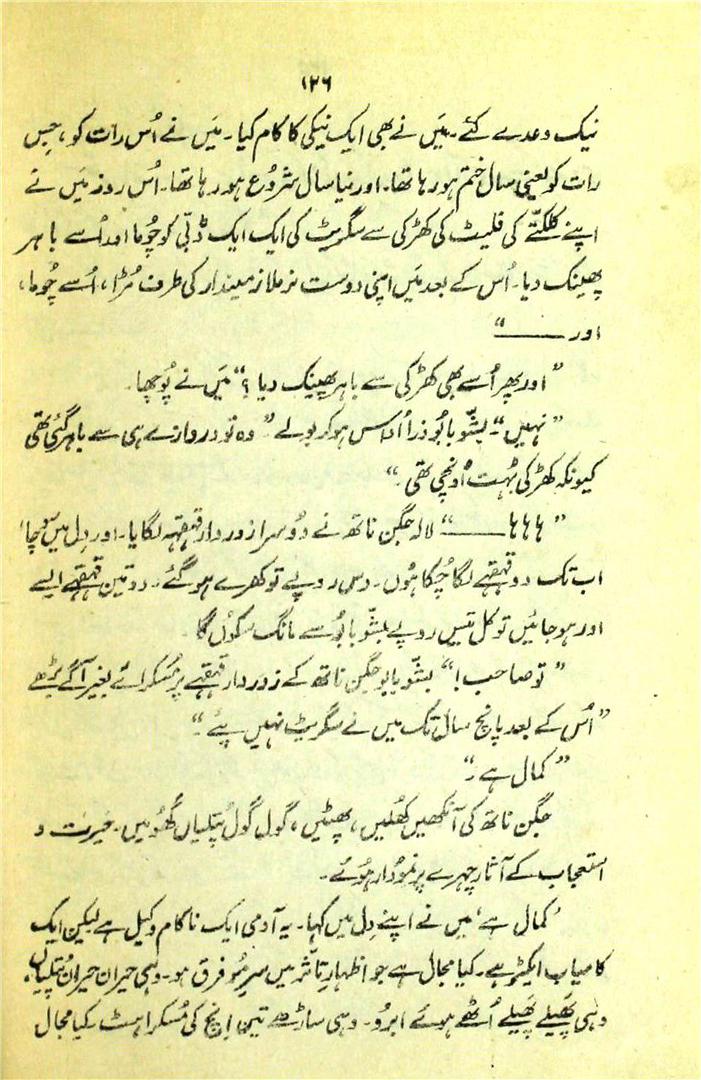 ۱۲۶
نیک وعدے کئے۔ میَں نے بھی ایک نیکی کا کام کیا۔ میَں نے اُس رات کو، جِس
رات کو یعنی سال ختم ہو رہا تھا۔ اور نیا سال شروُع ہو رہا تھا۔ اُس روز میَں نے
اپنے کلکتّے کی فلیٹ کی کھڑکی سے سگریٹ کی ایک ایک ڈبّی کو چُوما اور اُسے باہر
پھینک دیا۔ اُس کے بعد میَں اپنی دوست نرملا زمیندار کی طرف مُڑا، اُسے چُوما،
اور ــــــــ“
”اور پھر اُسے بھی کھڑکی سے باہر پھینک دیا؟“ میَں نے پُوچھا۔
”نہیں“۔ بشّو بابُو ذرا اُداس ہو کر بولے ”وہ تو دروازے ہی سے باہر گئی تھی
کیونکہ کھڑکی بہُت اُونچی تھی۔“
”ہاہاہا ــــــــ“ لالہ جگن ناتھ نے دوُسرا زور دار قہقہہ لگایا۔ اور دِل میں سوچا'
اب تک دو قہقہے لگا چُکا ہوُں۔ دس روپے تو کھرے ہو گئے۔ دو تین قہقہے ایسے
اور ہو جائیں تو کل تیس روپے بشّو بابوُ سے مانگ سکوُں گا۔
”تو صاحب!“ بشّو بابو جگن ناتھ کے زور دار قہقہے پر مُسکرائے بغیر آگے بڑھے
”اُس کے بعد پانچ سال تک میں نے سگریٹ نہیں پئے۔“
”کمال ہے۔“
جگن ناتھ کی آنکھیں کھُلیں، پھٹیں، گول گول پُتلیاں گھُومیں۔ حیرت و
استعجاب کے آثار چہرے پر نموُدار ہوُئے۔
'کمال ہے' میں نے اپنے دِل میں کہا۔ یہ آدمی ایک ناکام وکیل ہے لیکن ایک
کامیاب ایکٹر ہے۔ کیا مجال ہے جو اظہارِ تاثّر میں سرِ مُو فرق ہو۔ وہی حیران حیران پُتلیاں،
وہی پھَیلے پھَیلے اُٹھے ہوئے ابروُ۔ وہی ساڑھے تین اِنچ کی مُسکراہٹ۔ کیا مجال